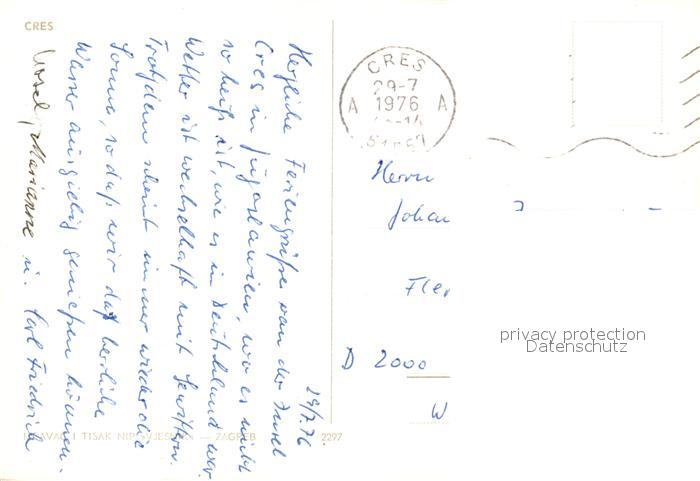 CRES
29/7.76
Herzliche Feriengrüße von der Insel
Cres in Jugoslawien, wo es nicht
so heiß ist, wie es in Deutschland war.
Wetter ist wechselhaft mit Gewittern.
Trotzdem scheint immer wieder die
Sonne, so daß wir das herrliche
Wasser ausgiebig genießen können.
Marianne u. Karl Friedrich
TISAK — ZAGREB 2297
CRES
29-7
A 1976 A
Herrn
Johan
D 2000
W
privacy protection
Datenschutz